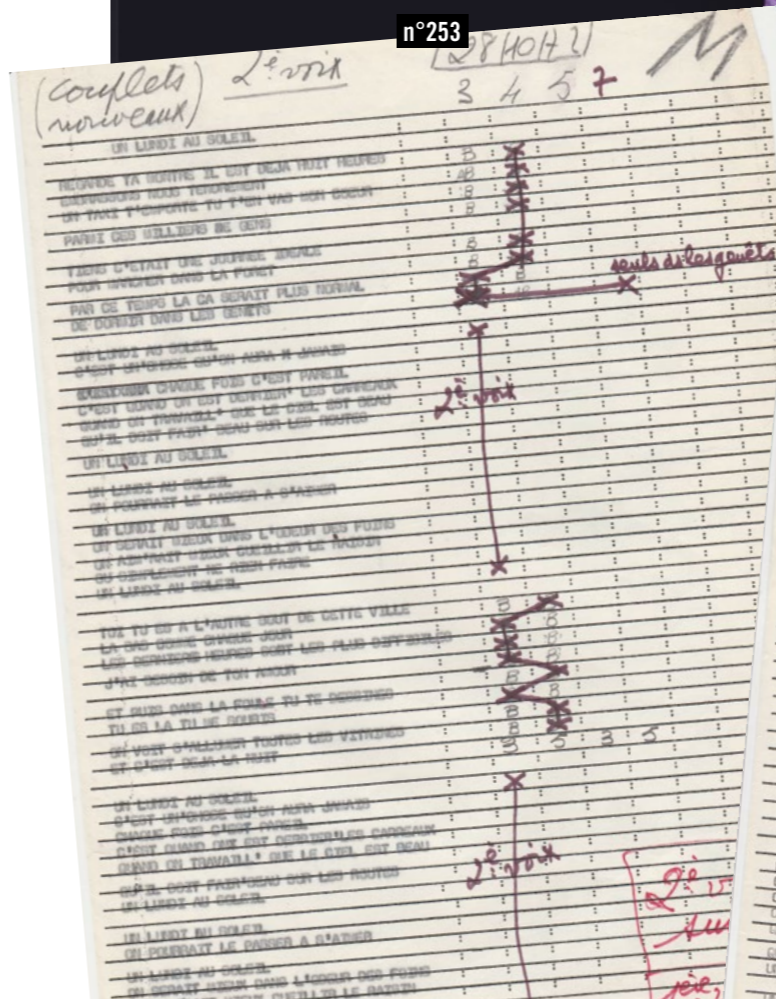 n°253
(couplets nouveaux) 2è voix
3 4 5 7
UN LUNDI AU SOLEIL
REGARDE TA MONTRE IL EST DEJA HUIT HEURES
EMBRASSONS NOUS TENDREMENT
UN TAXI T'EMPORTE TU T'EN VAS MON COEUR
PARMI CES MILLIERS DE GENS
TIENS C'ETAIT UNE JOURNEE IDEALE
POUR MARCHER DANS LA FORET
PAR CE TEMPS LA CA SERAIT PLUS NORMAL
DE DORMIR DANS LES GENETS
UN LUNDI AU SOLEIL
C'EST UN'CHOSE QU'ON AURA JAMAIS
CHAQUE FOIS C'EST PAREIL
C'EST QUAND ON EST DERRIER' LES CARREAUX
QUAND ON TRAVAILL' QUE LE CIEL EST BEAU
QU'IL DOIT FAIR' BEAU SUR LES ROUTES
2è voix
UN LUNDI AU SOLEIL
UN LUNDI AU SOLEIL
ON POURRAIT LE PASSER A S'AIMER
UN LUNDI AU SOLEIL
ON SERAIT MIEUX DANS L'ODEUR DES FOINS
ON AIM'RAIT MIEUX CUEILLIR LE RAISIN
OU SIMPLEMENT NE RIEN FAIRE
UN LUNDI AU SOLEIL
TOI TU ES A L'AUTRE BOUT DE CETTE VILLE
LA BAS COMME CHAQUE JOUR
LES DERNIERS HEURES SONT LES PLUS DIFFICILES
J'AI BESOIN DE TON AMOUR
ET PUIS DANS LA FOULE TU TE DESSINES
TU ES LA TU ME SOURIS
ON VOIT S'ALLUMER TOUTES LES VITRINES
3 5 3 5
ET C'EST DEJA LA NUIT
UN LUNDI AU SOLEIL
C'EST UN'CHOSE QU'ON AURA JAMAIS
CHAQUE FOIS C'EST PAREIL
C'EST QUAND ONT EST DERRIER'LES CARREAUX
QUAND ON TRAVAILL' QUE LE CIEL EST BEAU
2è voix
QU'IL DOIT FAIR'BEAU SUR LES ROUTES
UN LUNDI AU SOLEIL
UN LUNDI AU SOLEIL
ON POURRAIT LE PASSER A S'AIMER
UN LUNDI AU SOLEIL
ON SERAIT MIEUX DANS L'ODEUR DES FOINS
MIEUX CUEILLIR LE RAISIN